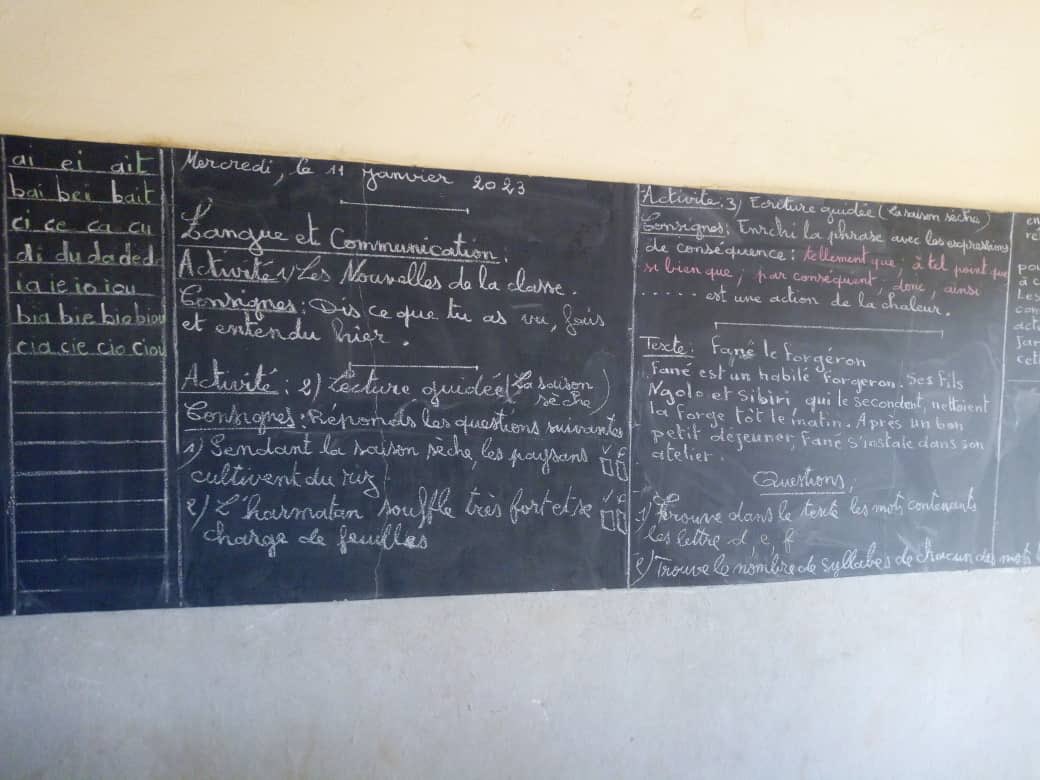 ai ei ait
bai bei bait
ci ce ca cu
di du da de d
ia ie io iou
bia bie bio biou
cia cie cio ciou
Mercredi, le 11 Janvier 2023
Langue et Communication.
Activité 1/ Les Nouvelles de la classe.
Consignes: Dis ce que tu as vu, fais
et entendu hier.
Activité: 2) Lecture guidée (La saison
sèche)
Consignes: Réponds les questions suivantes
1) Pendant la saison sèche, les paysans V F
cultivent du riz
2) L'harmatan souffle très fort et se V F
charge de feuilles
Activité: 3) Ecriture guidée (la saison sèche)
Consignes: Enrichi la phrase avec les expressions
de conséquence: tellement que, à tel point que
si bien que, par conséquent, donc, ainsi
...... est une action de la chaleur.
Texte: Fané le Forgéron
Fané est un habilé Forgeron. Ses Fils
Ngolo et Sibiri qui le secondent, nettoient
la Forge tôt le matin. Après un bon
petit déjeuner, Fané s'instale dans son
atelier.
Questions,
1) Trouve dans le texte les mots contenants
les lettre d, e, f
2) Trouve le nombre de syllabes de chacun des mots
en
pou
à c
Les
con
acti
Jar
cet